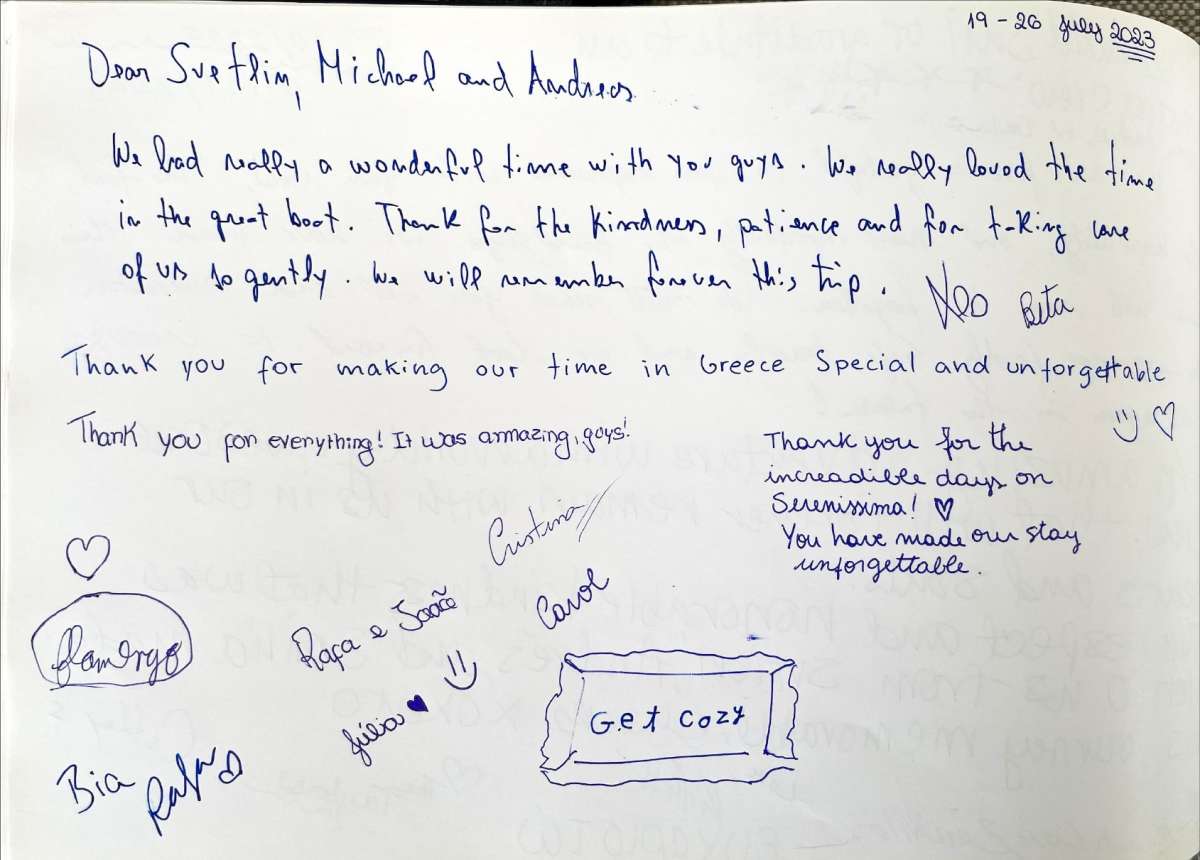 19 - 26 July 2023
Dear Svetlin, Michael and Andreas
We had really a wonderful time with you guys. We really loved the time
in the great boat. Thank for the kindness, patience and for taking care
of us so gently. We will remember forever this trip.
Neo Beta
Thank you for making our time in Greece Special and unforgettable
Thank you for everything! It was amazing, guys!
Thank you for the
increadible days on
Serenissima! ♡
You have made our stay
unforgettable.
Cristina
Carol
flamengo
Rafa e João
Júlia ♥
Get cozy
Bia
Rafa